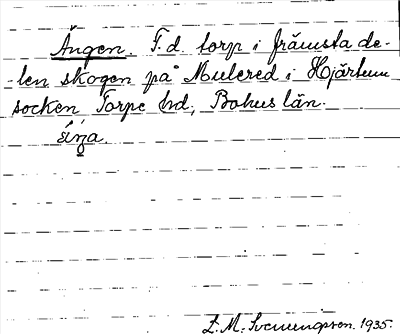 Ängen. F.d. torp i främsta de-
-len skogen på Mulered i Hjärtum
socken Torpe hd, Bohus län.
E. M. Svenungson. 1935.